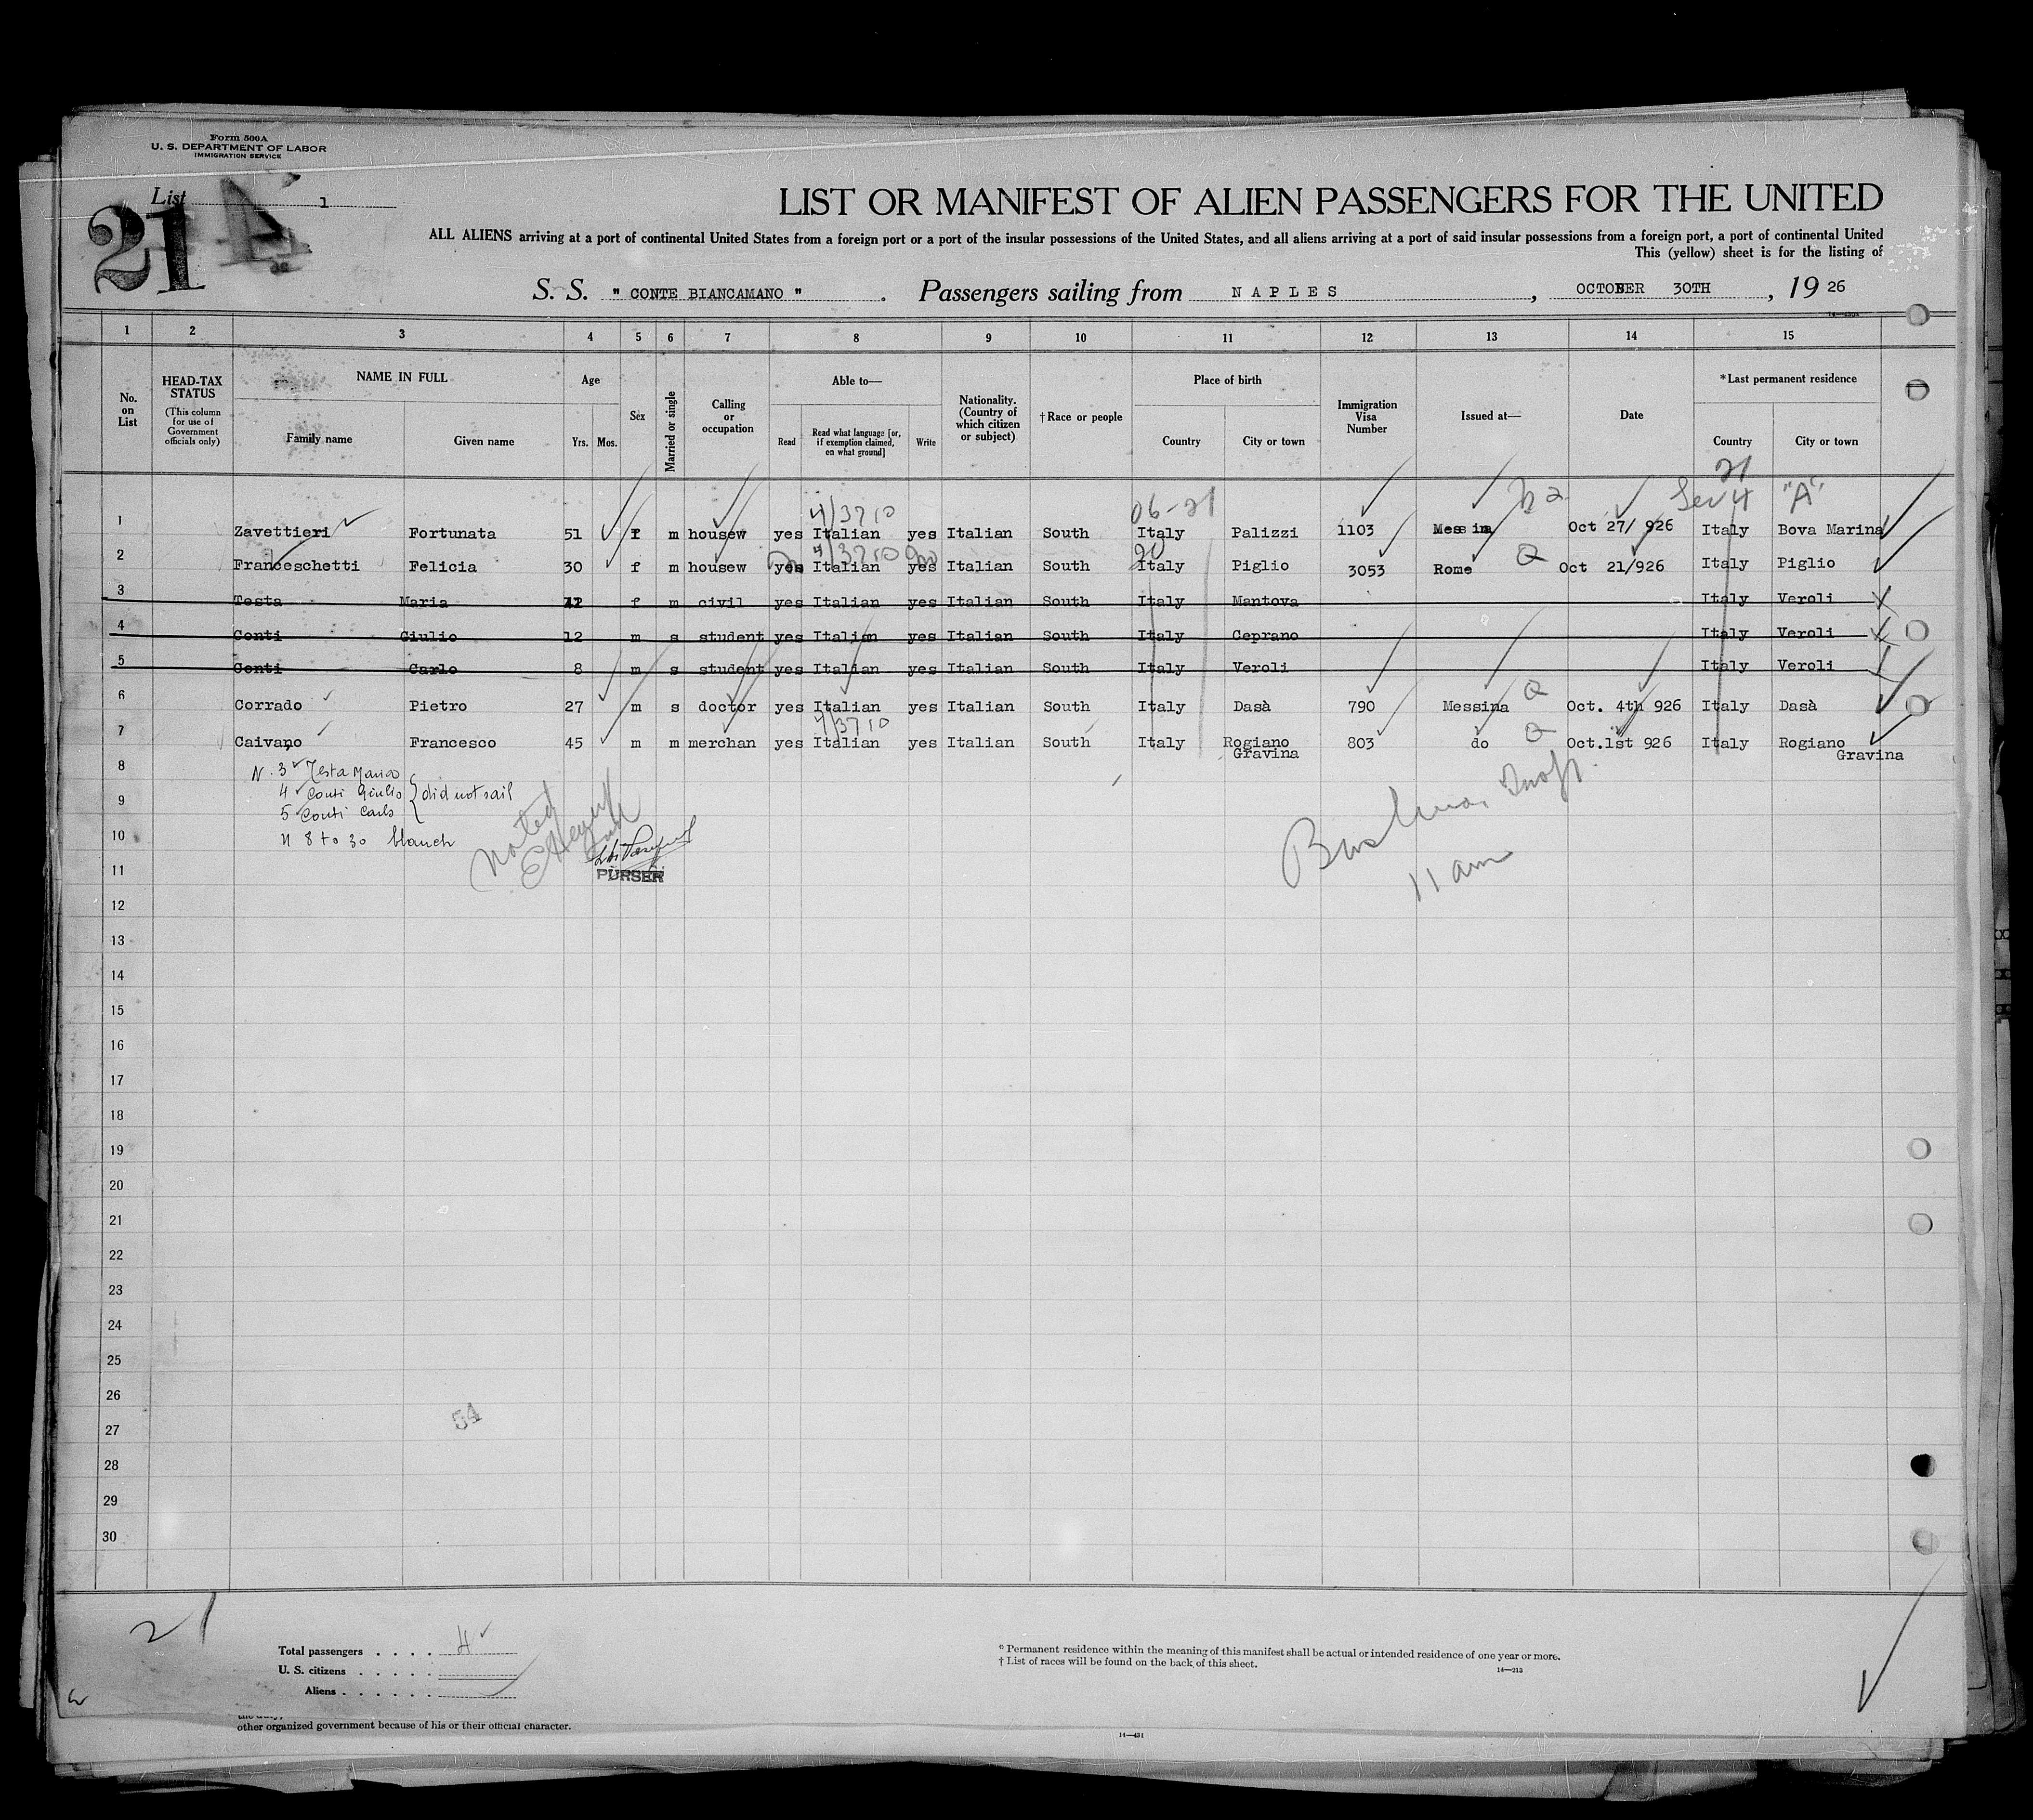 Form 500A
U. S. DEPARTMENT OF LABOR
IMMIGRATION SERVICE
List 1
21
LIST OR MANIFEST OF ALIEN PASSENGERS FOR THE UNITED
ALL ALIENS arriving at a port of continental United States from a foreign port or a port of the insular possessions of the United States, and all aliens arriving at a port of said insular possessions from a foreign port, a port of continental United
This (yellow) sheet is for the listing of
S. S. " CONTE BIANCAMANO " . Passengers sailing from NAPLES , OCTOBER 30TH , 19 26
1 2 3 4 5 6 7 8 9 10 11 12 13 14 15
No. on List
HEAD-TAX STATUS (This column for use of Government officials only)
NAME IN FULL
Family name Given name
Age
Yrs. Mos.
Sex
Married or single
Calling or occupation
Able to—
Read
Read what language [or, if exemption claimed, on what ground]
Write
Nationality. (Country of which citizen or subject)
† Race or people
Place of birth
Country City or town
Immigration Visa Number
Issued at—
Date
*Last permanent residence
Country City or town
21
4/3710 06-21 "A"
1 Zavettieri Fortunata 51 f m housew yes Italian yes Italian South Italy Palizzi 1103 Messina Oct 27/ 926 Italy Bova Marina
4/3710 20
2 Franceschetti Felicia 30 f m housew yes Italian yes Italian South Italy Piglio 3053 Rome Oct 21/926 Italy Piglio
3 Testa Maria f m civil yes Italian yes Italian South Italy Mantova Italy Veroli
4 Conti Giulio 12 m s student yes Italian yes Italian South Italy Ceprano Italy Veroli
5 Conti Carlo 8 m s student yes Italian yes Italian South Italy Veroli Italy Veroli
6 Corrado Pietro 27 m s doctor yes Italian yes Italian South Italy Dasà 790 Messina Oct. 4th 926 Italy Dasà
4/3710
7 Caivano Francesco 45 m m merchan yes Italian yes Italian South Italy Rogiano Gravina 803 do Oct.1st 926 Italy Rogiano Gravina
8
N. 3 Testa Maria
9
4 Conti Giulio } did not sail
5 Conti Carlo
10
N 8 to 30 blanch
noted
11
PURSER
11 am
12
13
14
15
16
17
18
19
20
21
22
23
24
25
26
27
54
28
29
30
21
Total passengers . . . . 4
U. S. citizens . . . . .
Aliens . . . . . .
* Permanent residence within the meaning of this manifest shall be actual or intended residence of one year or more.
† List of races will be found on the back of this sheet.
14—213
other organized government because of his or their official character.
14—431